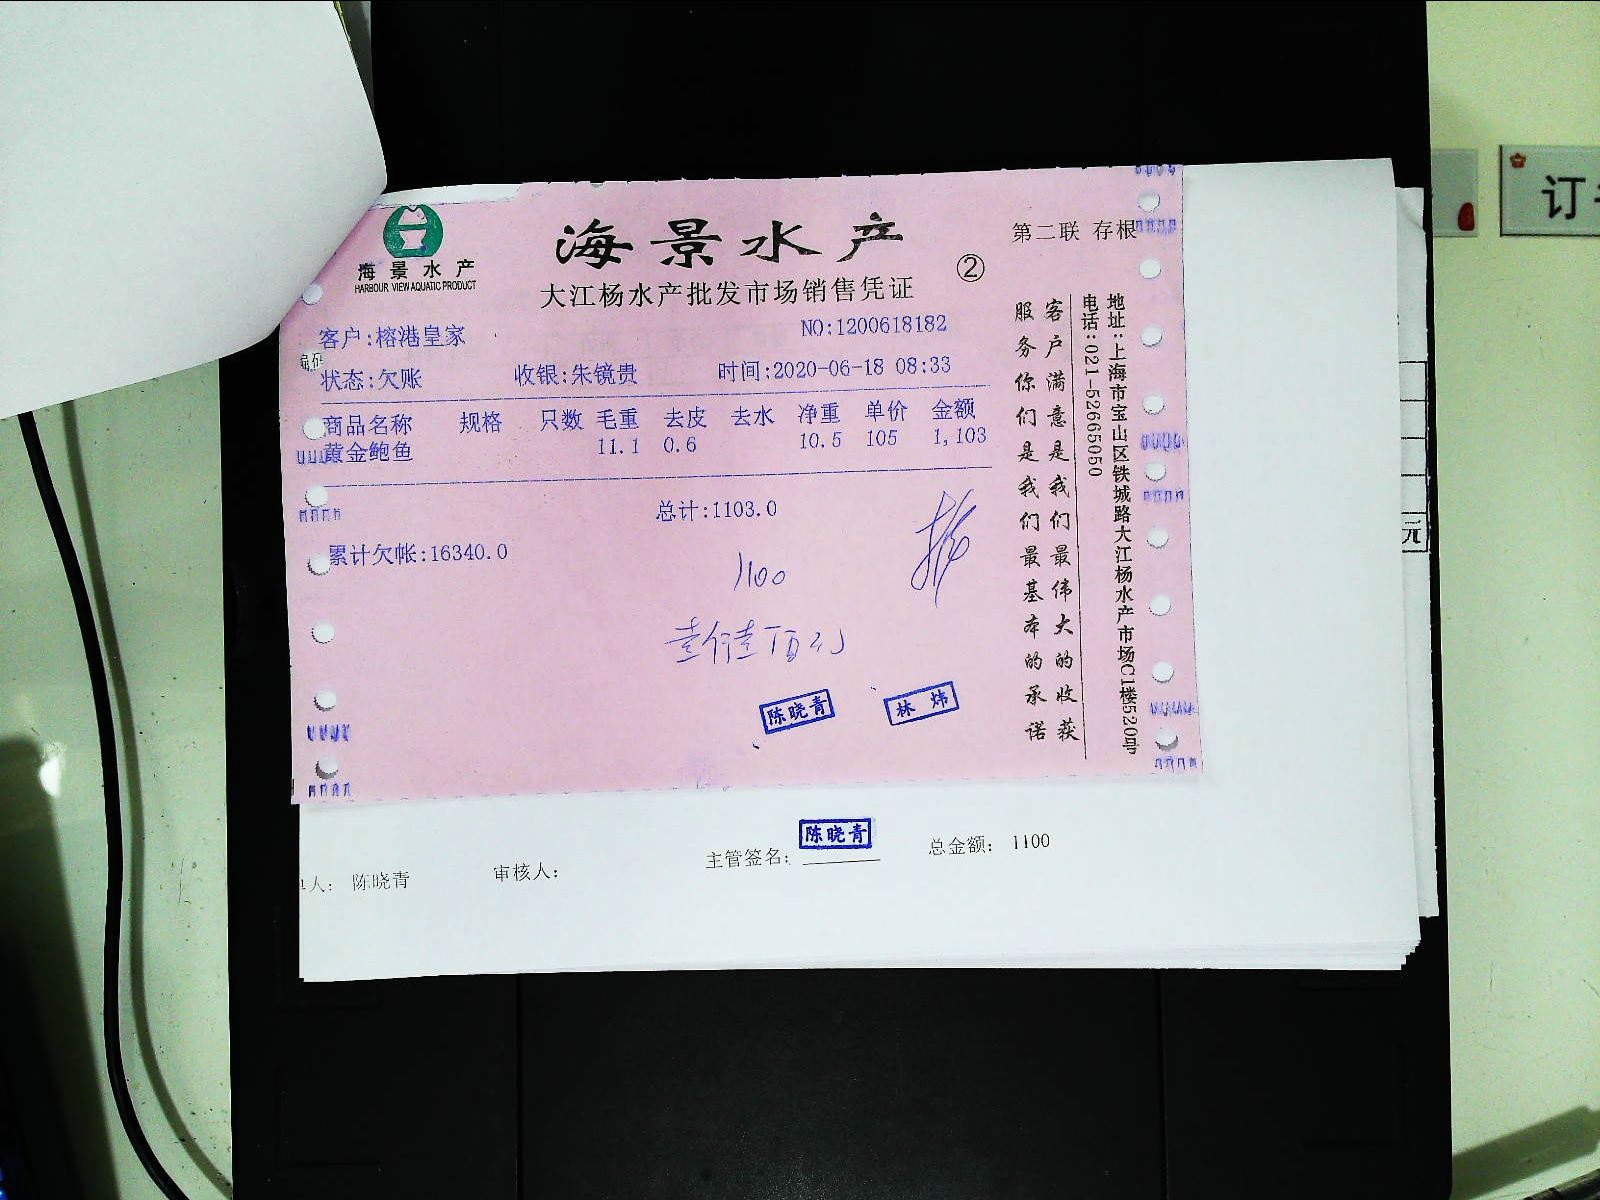 海景水产
HARBOUR VIEW AQUATIC PRODUCT
海景水产
大江杨水产批发市场销售凭证
②
第二联 存根
客户:榕港皇家
NO:1200618182
状态:欠账 收银:朱镜贵 时间:2020-06-18 08:33
商品名称 规格 只数 毛重 去皮 去水 净重 单价 金额
黄金鲍鱼 11.1 0.6 10.5 105 1,103
总计:1103.0
累计欠帐:16340.0
1100
壹仟壹佰元
陈晓青
林炜
客户满意是我们最伟大的收获
服务你们是我们最基本的承诺
地址:上海市宝山区铁城路大江杨水产市场C1楼520号
电话:021-52665050
人: 陈晓青 审核人: 主管签名: 陈晓青 总金额: 1100
元
订